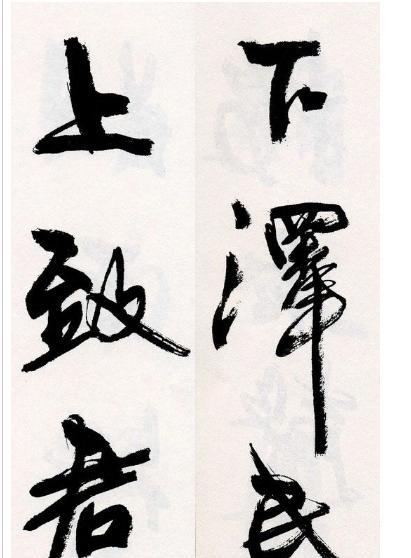 下澤民
上致君